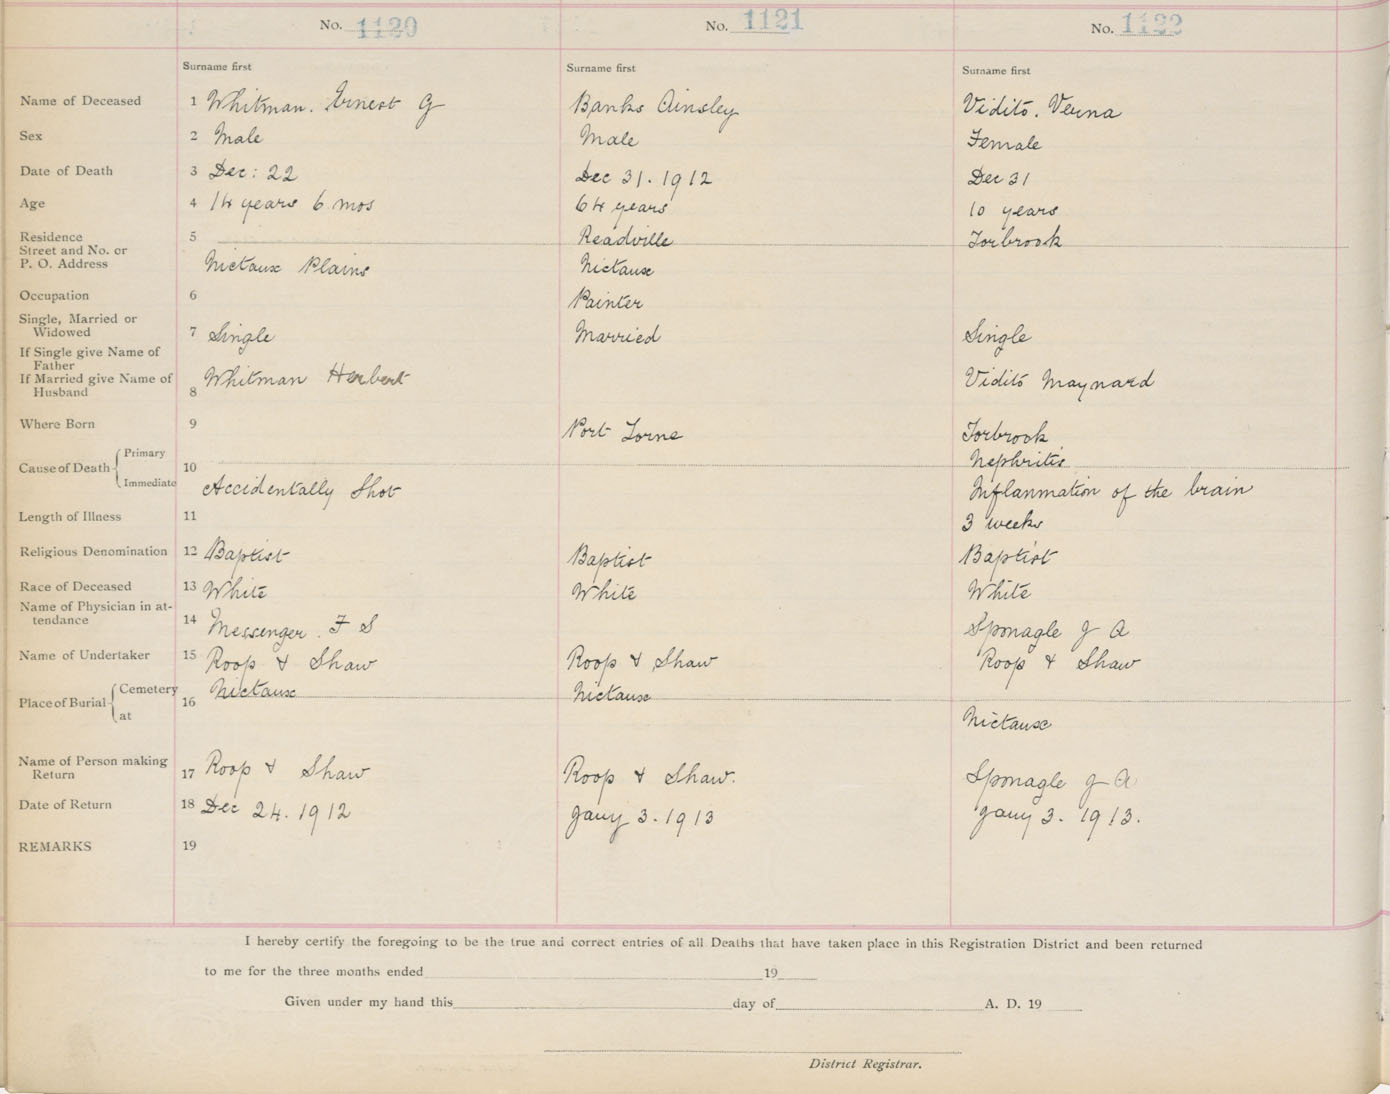 No. 1120 No. 1121 No. 1122
Surname first Surname first Surname first
Name of Deceased 1 Whitman. Ernest G Banks Ainsley Vidito. Verna
Sex 2 Male Male Female
Date of Death 3 Dec: 22 Dec 31. 1912 Dec 31
Age 4 14 years 6 mos 64 years 10 years
Residence 5 Readville Torbrook
Street and No. or
P. O. Address Nictaux Plains Nictaux
Occupation 6 Painter
Single, Married or
Widowed 7 Single Married Single
If Single give Name of
Father
If Married give Name of Whitman Herbert Vidito Maynard
Husband 8
Where Born 9 Port Lorne Torbrook
Primary Nephritis
Cause of Death 10
Immediate Accidentally Shot Inflanmation of the brain
Length of Illness 11 3 weeks
Religious Denomination 12 Baptist Baptist Baptist
Race of Deceased 13 White White White
Name of Physician in at-
tendance 14 Messenger. F S Sponagle J A
Name of Undertaker 15 Roop & Shaw Roop & Shaw Roop & Shaw
Cemetery Nictaux Nictaux
Place of Burial 16
at Nictaux
Name of Person making
Return 17 Roop & Shaw Roop & Shaw. Sponagle J A
Date of Return 18 Dec 24. 1912 Jany 3. 1913 Jany 3. 1913.
REMARKS 19
I hereby certify the foregoing to be the true and correct entries of all Deaths that have taken place in this Registration District and been returned
to me for the three months ended 19
Given under my hand this day of A. D. 19
District Registrar.